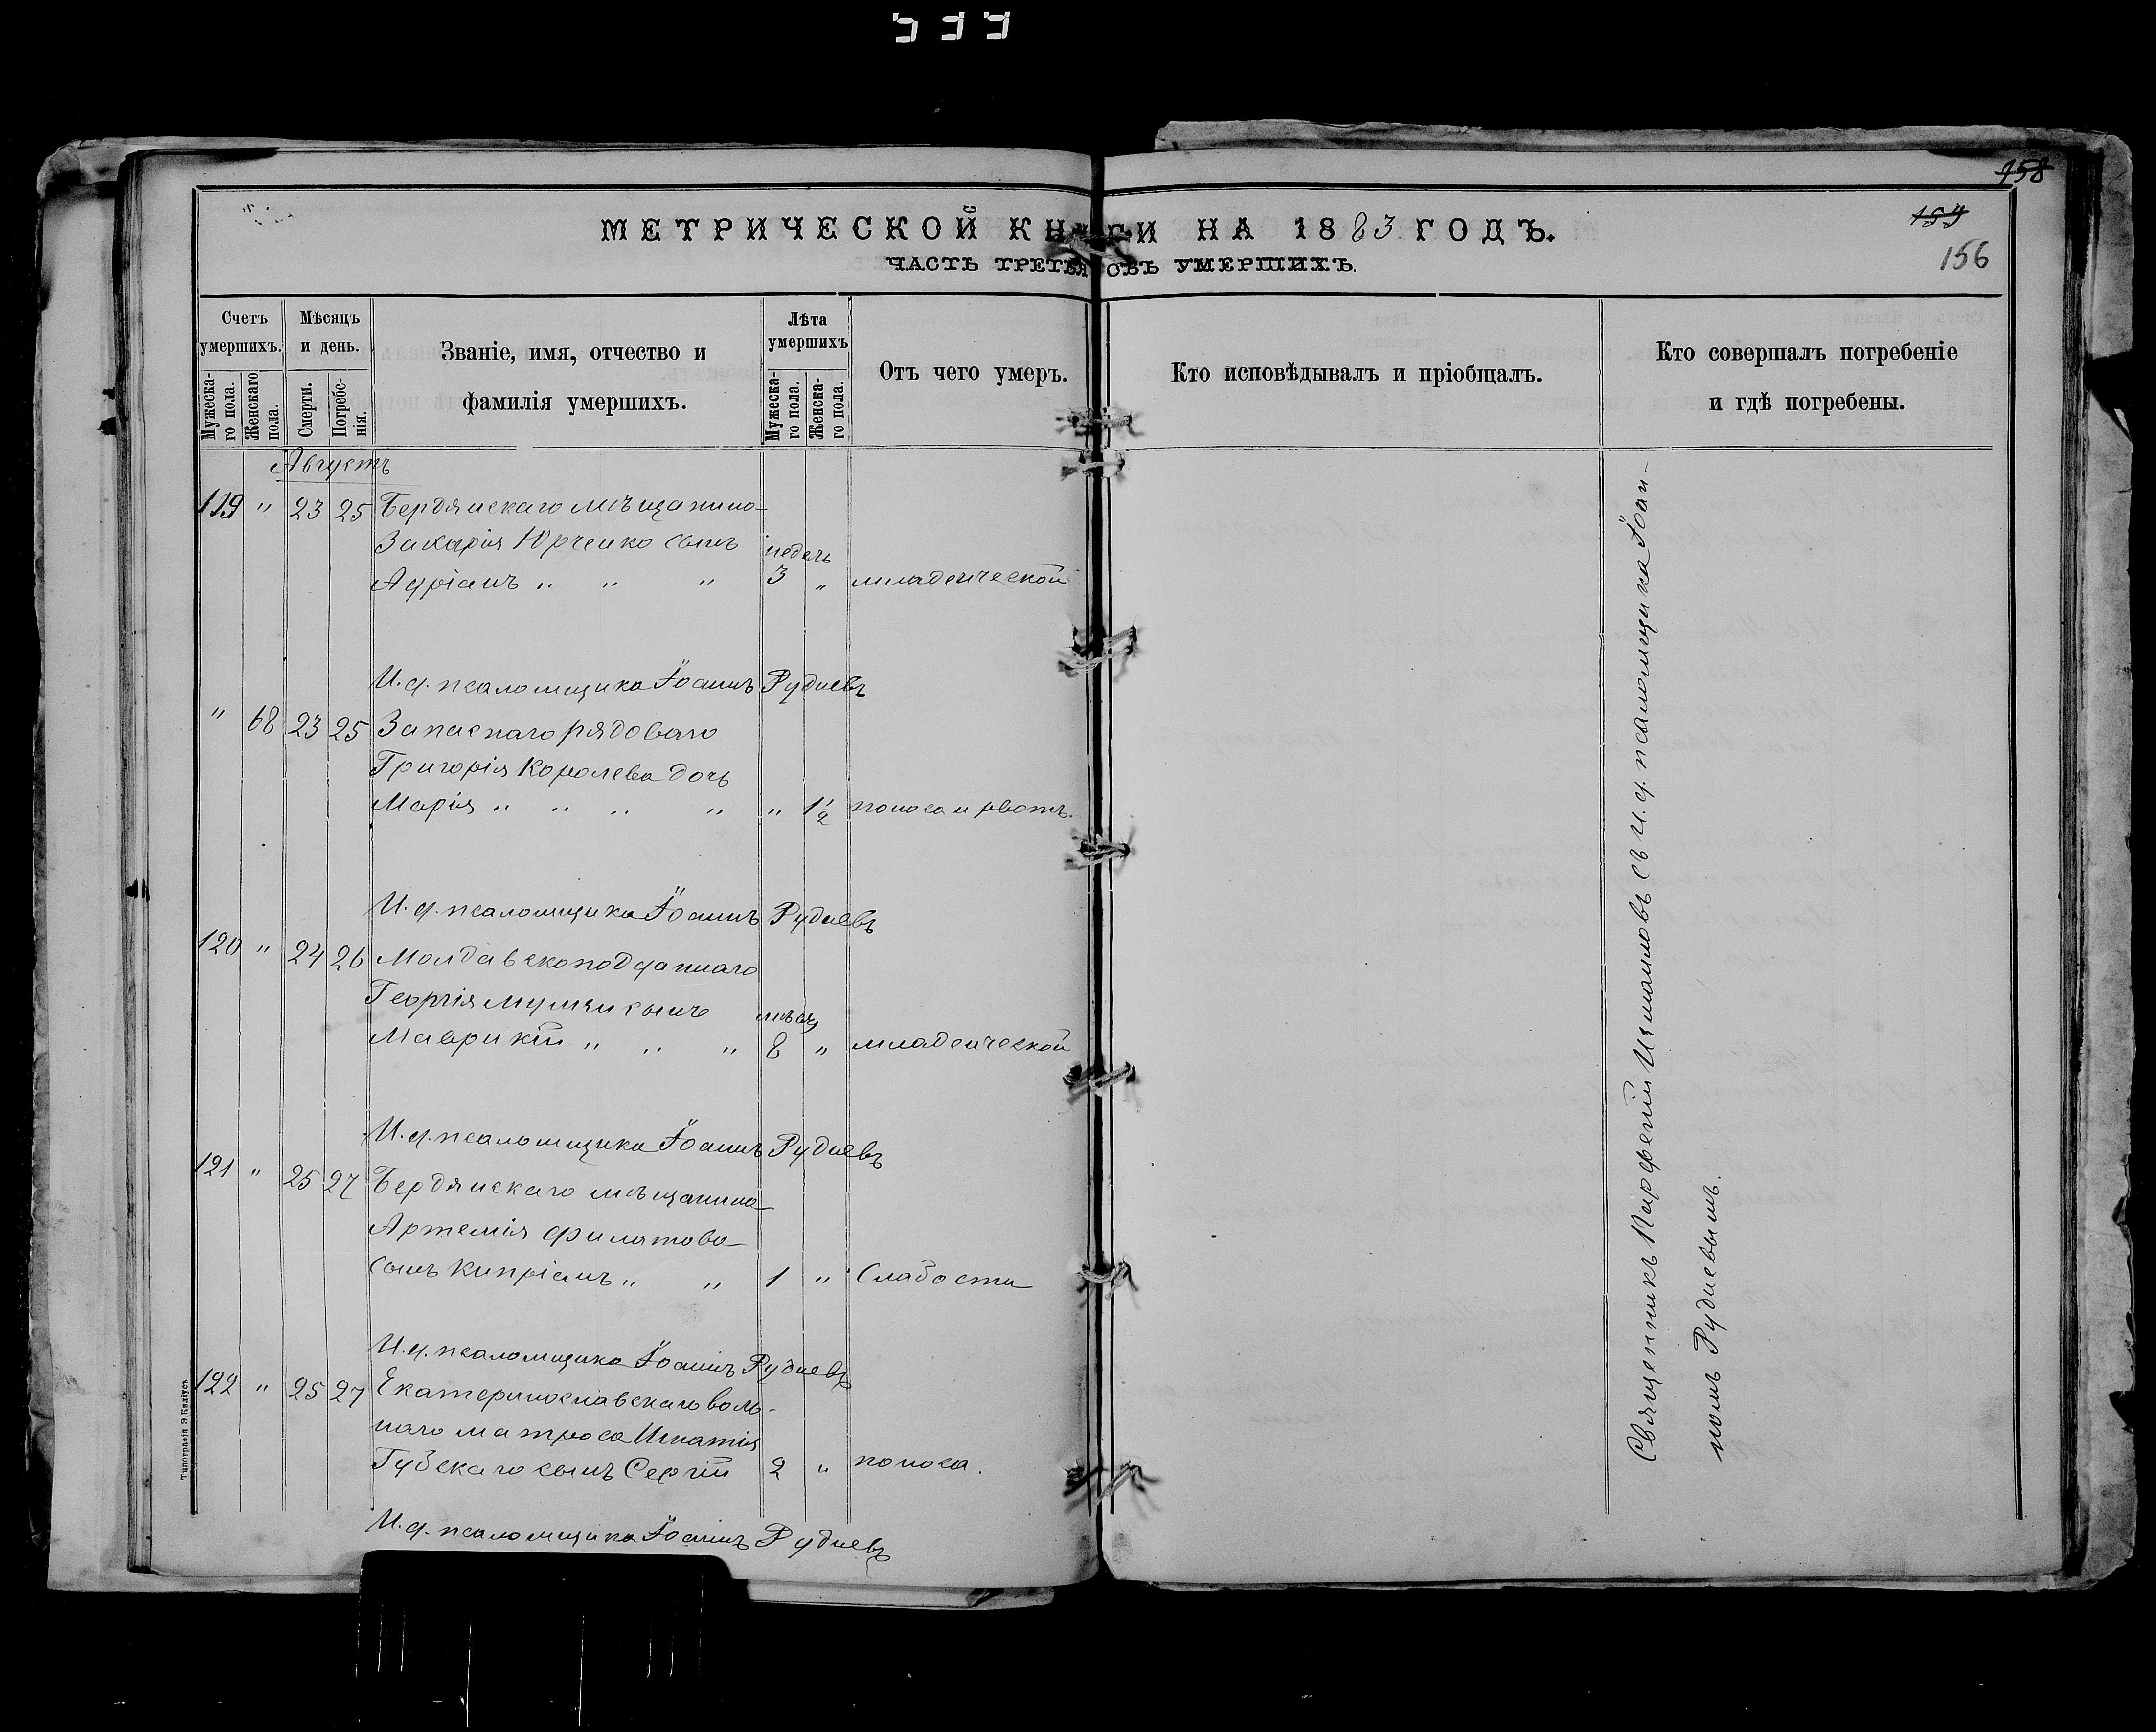 158
159
156
МЕТРИЧЕСКОЙ КНИГИ НА 1883 ГОДЪ.
ЧАСТЬ ТРЕТЬЯ ОБЪ УМЕРШИХЪ.
Счетъ умершихъ.
Мужеска-го пола.
Женскаго пола.
Мѣсяцъ и день.
Смерти.
Погребе-нія.
Званіе, имя, отчество и
фамилія умершихъ.
Лѣта умершихъ
Мужеска-го пола.
Женска-го пола.
Отъ чего умеръ.
Кто исповѣдывалъ и пріобщалъ.
Кто совершалъ погребеніе
и гдѣ погребены.
Августъ
119 " 23 25 Бердянскаго мѣщанина
Захарія Юрченко сынъ недель
Адріанъ " " " 3 " младенческой
И. д. псаломщика Іоаннъ Рудневъ
" 68 23 25 Запаснаго рядоваго
Григорія Королева дочь
Марія " " " " " 1½ поноса и рвотъ.
И. д. псаломщика Іоаннъ Рудневъ
120 " 24 26 Молдавскоподданнаго
Георгія сынъ мѣсяц
Маврикій " " " 8 " младенческой
И. д. псаломщика Іоаннъ Рудневъ
121 " 25 27 Бердянскаго мѣщанина
Артемія Филатова
сынъ Кипріанъ " " 1 " Слабости
И. д. псаломщика Іоаннъ Рудневъ
122 " 25 27 Екатеринославскаго воль-
наго матроса Игнатія
Губскаго сынъ Сергій 2 " поноса.
И. д. псаломщика Іоаннъ Рудневъ
Священникъ Парфеній съ И. д. псаломщика Іоан-
номъ Рудневымъ.
Типографія Э. Килiусъ